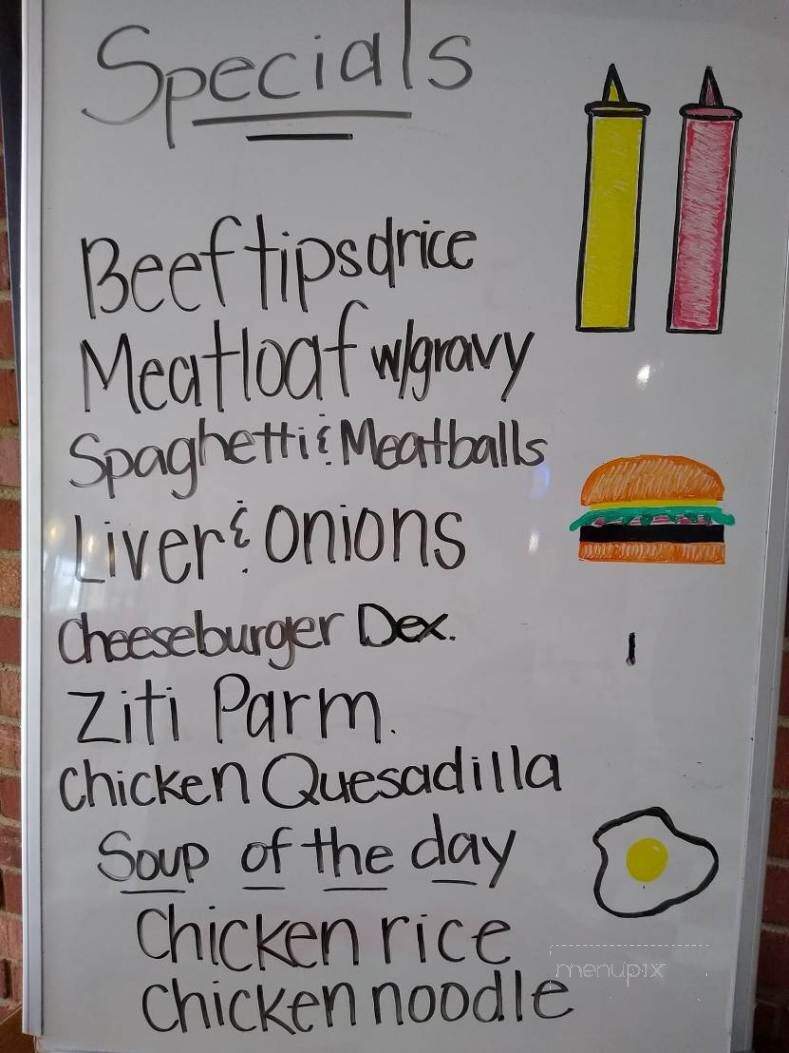 Specials
Beef tips & rice
Meatloaf w/gravy
Spaghetti & Meatballs
Liver & Onions
Cheeseburger Dex.
Ziti Parm.
Chicken Quesadilla
Soup of the day
Chicken rice
Chicken noodle
menupix